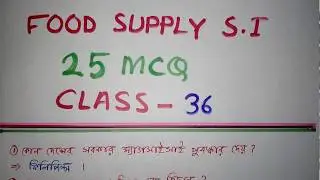 FOOD SUPPLY S.I
25 MCQ
CLASS - 36
① কোন দেশের সরকার ম্যাগসাইসাই পুরস্কার দেয় ?
⇒ ফিলিপিন্স ।